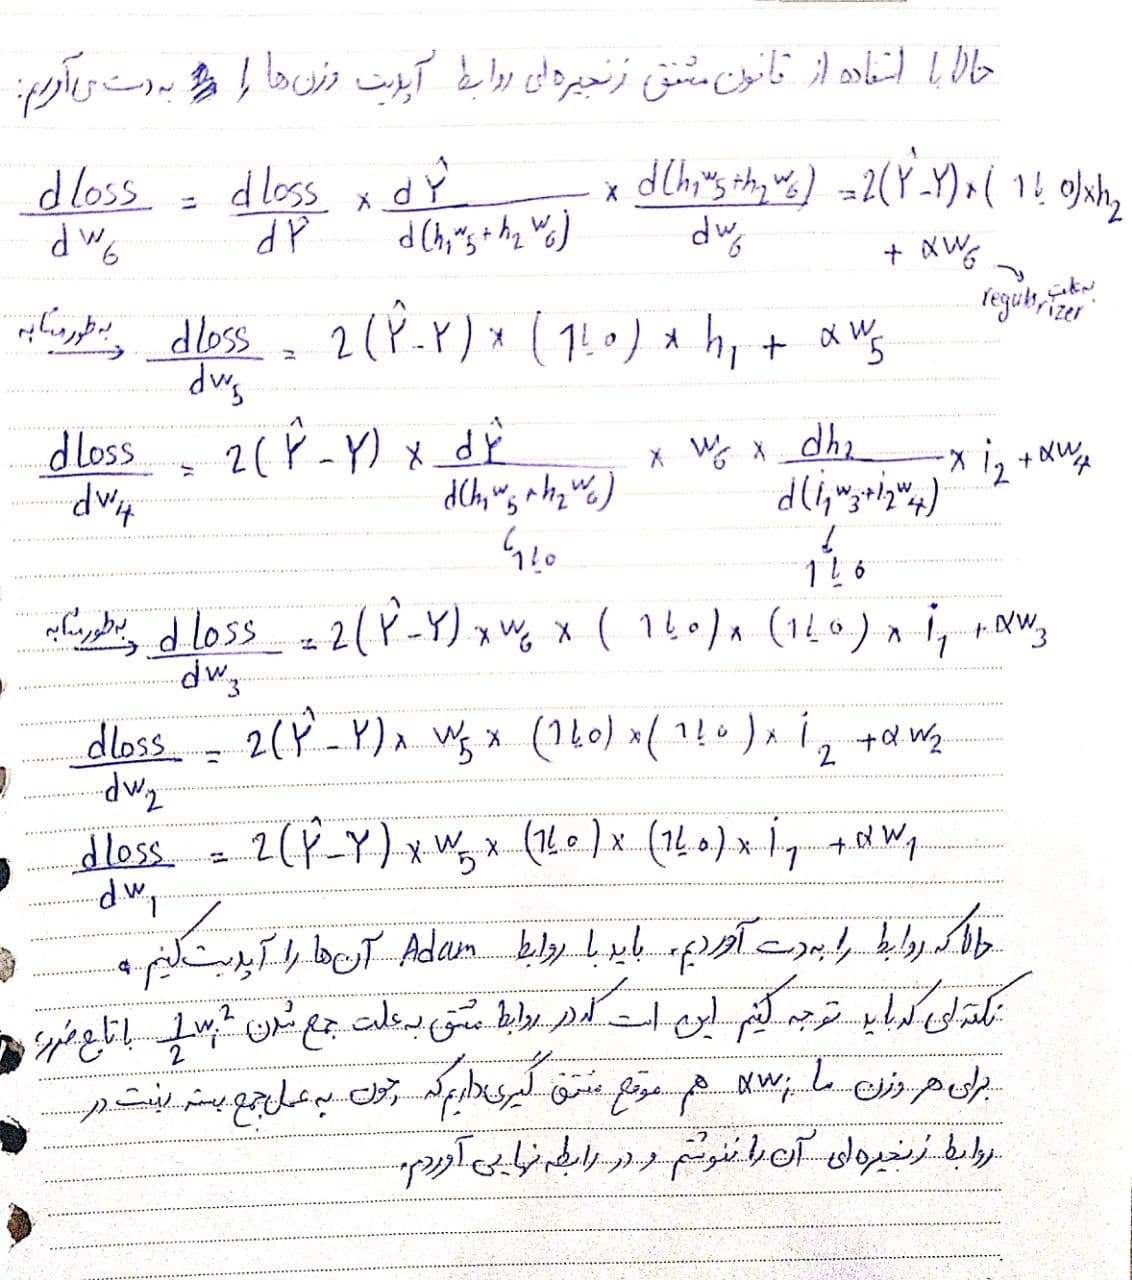 حالا با استفاده از قانون مشتق زنجیره‌ای روابط آپدیت وزن‌ها را به دست می‌آوریم:
dloss/dw₆ = dloss/dŶ × dŶ/d(h₁w₅+h₂w₆) × d(h₁w₅+h₂w₆)/dw₆ = 2(Ŷ-Y)×(1 یا 0)×h₂ + αw₆
به علت regularizer
به طور مشابه → dloss/dw₅ = 2(Ŷ-Y) × (1 یا 0) × h₁ + αw₅
dloss/dw₄ = 2(Ŷ-Y) × dŶ/d(h₁w₅+h₂w₆) × w₆ × dh₂/d(i₁w₃+i₂w₄) × i₂ + αw₄
1 یا 0 1 یا 0
به طور مشابه → dloss/dw₃ = 2(Ŷ-Y) × w₆ × (1 یا 0) × (1 یا 0) × i₁ + αw₃
dloss/dw₂ = 2(Ŷ-Y) × w₅ × (1 یا 0) × (1 یا 0) × i₂ + αw₂
dloss/dw₁ = 2(Ŷ-Y) × w₅ × (1 یا 0) × (1 یا 0) × i₁ + αw₁
حالا که روابط را به دست آوردیم، باید با روابط Adam آن‌ها را آپدیت کنیم و
نکته‌ای که باید توجه کنیم این است که در روابط مشتق به علت جمع شدن 1/2 wᵢ² با تابع ضرر،
برای هر وزن ما αwᵢ هم موقع مشتق گیری داریم که چون به عمل جمع بسته نیست در
روابط زنجیره‌ای آن را ننوشتم و در رابطه نهایی آوردم.